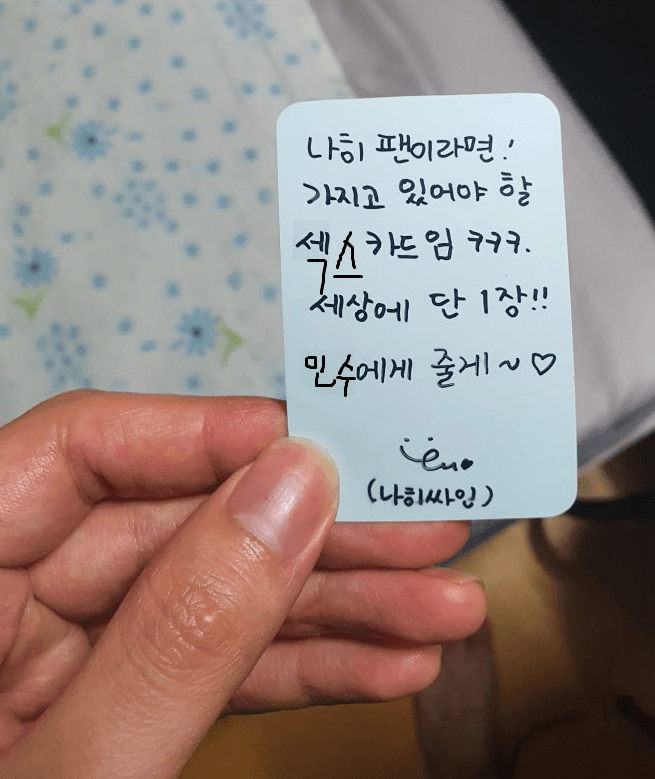 나히 팬이라면!
가지고 있어야 할
섹스 카드임 ㅋㅋㅋ.
세상에 단 1장!!
민수에게 줄게~♡
(나히싸인)